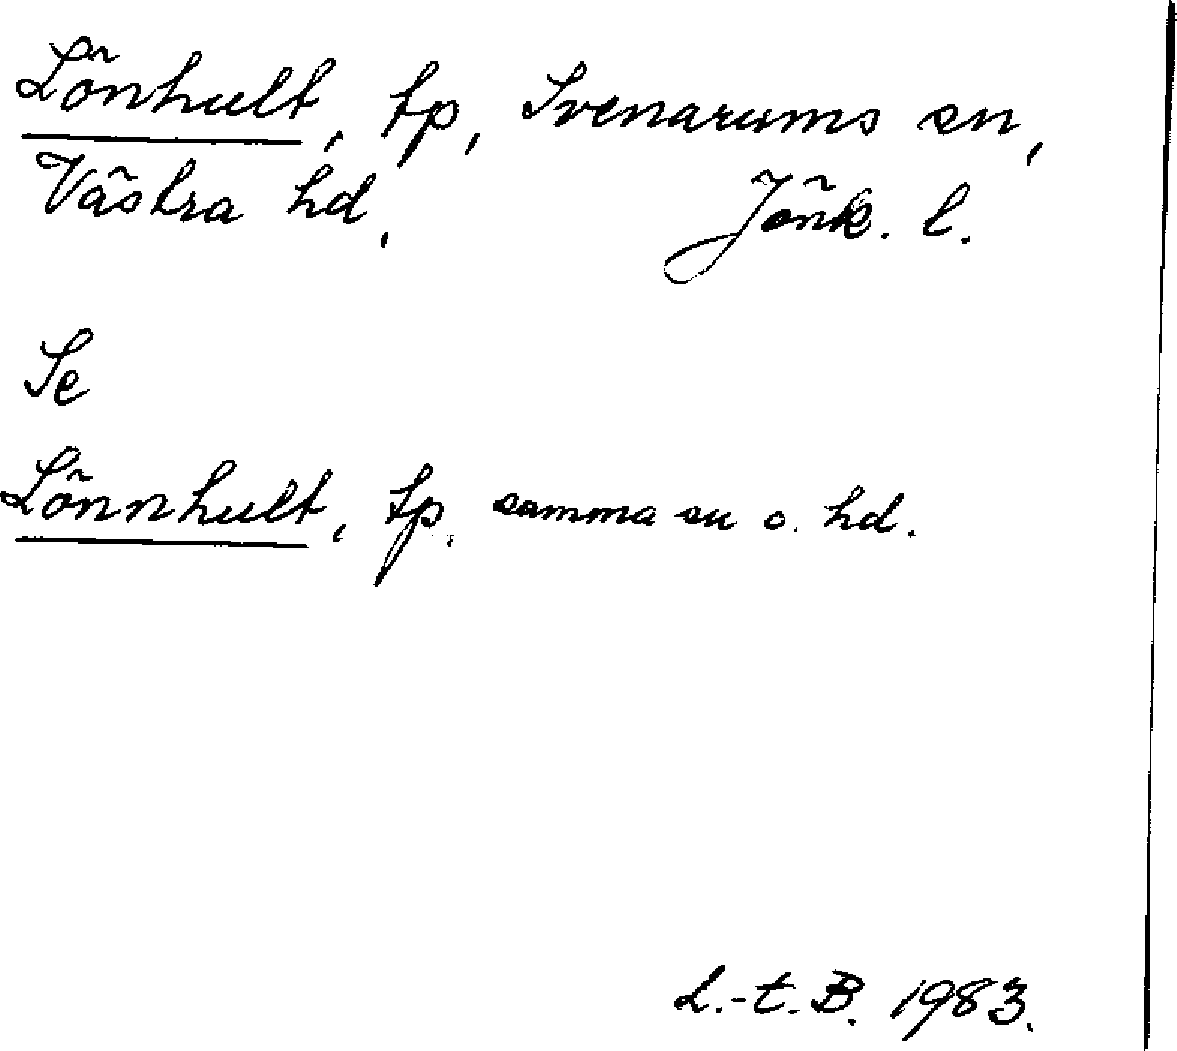 Lönhult, tp, Svenarums sn,
Västra hd, Jönk. l.
Se
Lönnhult, tp. samma sn o. hd.
L.-t. B. 1983.